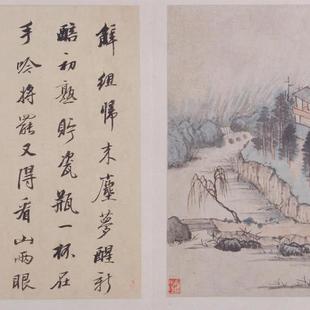 解組歸來塵夢醒新
醅初熟貯瓷瓶一杯在
手吟將罷又得看山兩眼